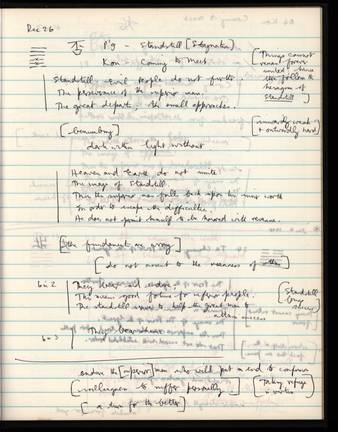 Dec 26
否 P'i – Standstill [Stagnation]
Kou – Coming to Meet
[Things cannot
remain forever
united – hence
follows
hexagram of
Standstill]
Standstill – Evil People do not further
The perseverance of the superior man.
The great departs; the small approaches.
[benumbing]
[inwardly weak
& outwardly hard]
dark within – light without
Heaven and Earth do not unite
The image of Standstill
Thus the superior man falls back upon his inner worth
In order to escape the difficulties
He does not permit himself to be honored with revenue.
[the fundament are wrong]
[do not assent to the meanness of others]
6 in 2
They bear and endure
This means good fortune for inferior people.
The standstill serves to help the great man to
attain success
[Standstill
brings
success]
6 in 3
They bear shame
endure the [superior] man who will put an end to confusion
[willingness to suffer personally]
[Taking refuge
in virtue]
[a turn for the better]